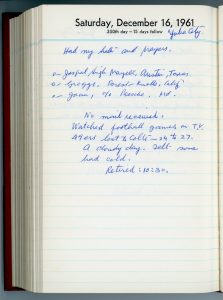 Saturday, December 16, 1961
350th day – 15 days follow Yuba City
Had my and prayers.
Joseph, High Maytell, Austin, Texas
Greggs, Forest Knolls, Calif
Joan, %
No mail received.
Watched football games on T.V.
49ers lost to Colts – 24 to 27.
A cloudy day. Still some
bad cold.
Retired: 10:30.